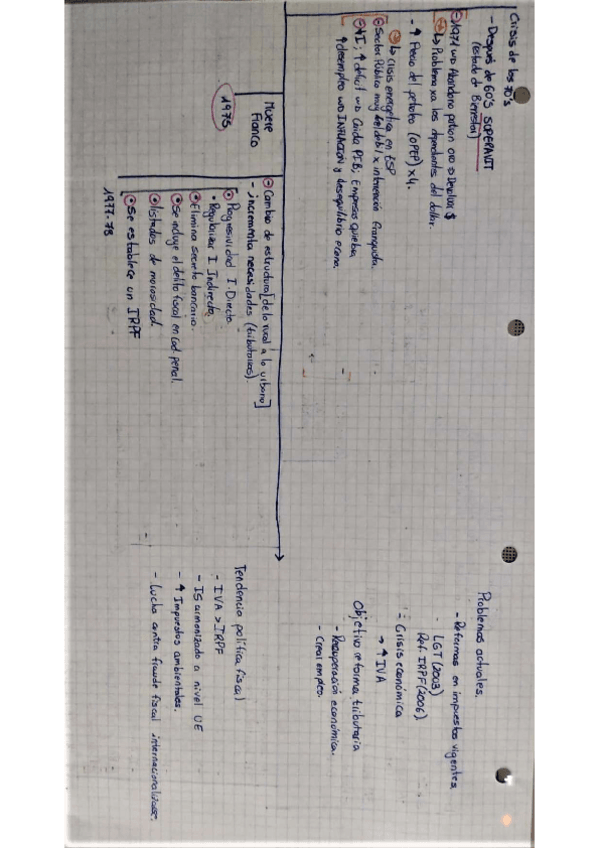 Crisis de los 70's
- Después de 60's SUPERAVIT
(estado de Bienestar)
1971 Abandono patron oro Devalua $
↳ Problema xa los dependientes del dollar
- ↑ Precio del petróleo (OPEP) x4.
↳ Crisis energetica en ESP
Sector Público muy debil x intervención franquista.
↑ déficit Caída PIB; Empresas quiebra
↑ desempleo INFLACIÓN y desequilibrio econo.
Muere
Franco
1975
Cambio de estructura [de lo rural a lo urbano]
- incrementa necesidades (tributarias).
Progresividad I. Directo
• Regularizar I. Indirecto.
Elimina secreto bancario.
Se incluye el delito fiscal en cod penal.
listados de morosidad.
Se establece un IRPF
1977-78
Problemas actuales.
- Reformas en impuestos vigentes
- LGT (2003)
Ref. IRPF (2006)
- Crisis económica
→ ↑ IVA
Objetivo reforma tributaria
- Recuperación económica.
- Crear empleo.
Tendencia política fiscal
- IVA > IRPF
- IS armonizado a nivel UE
- ↑ Impuestos ambientales.
- Lucha contra fraude fiscal